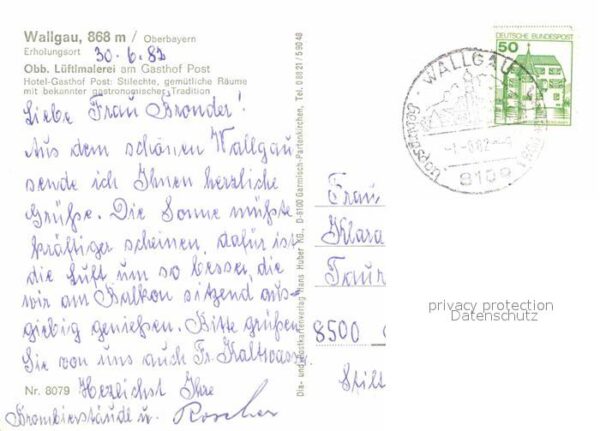 Wallgau, 868 m / Oberbayern
Erholungsort
30.6.82
Obb. Lüftlmalerei am Gasthof Post
Hotel-Gasthof Post: Stilechte, gemütliche Räume
mit bekannter gastronomischer Tradition
Liebe Frau Bronder!
Aus dem schönen Wallgau
sende ich Ihnen herzliche
Grüße. Die Sonne müßte
kräftiger scheinen, dafür ist
die Luft um so besser, die
wir am Balkon sitzend aus-
giebig genießen. Bitte grüßen
Sie von uns auch Fr. Kaltwasser
Nr. 8079
Herzlichst Ihre
u. Roscher
Dia- und Postkartenverlag Hans Huber KG., D-8100 Garmisch-Partenkirchen, Tel. 08821/59048
DEUTSCHE BUNDESPOST
50
WALLGAU
8109
Frau
Klara
8500
Stift
privacy protection
Datenschutz